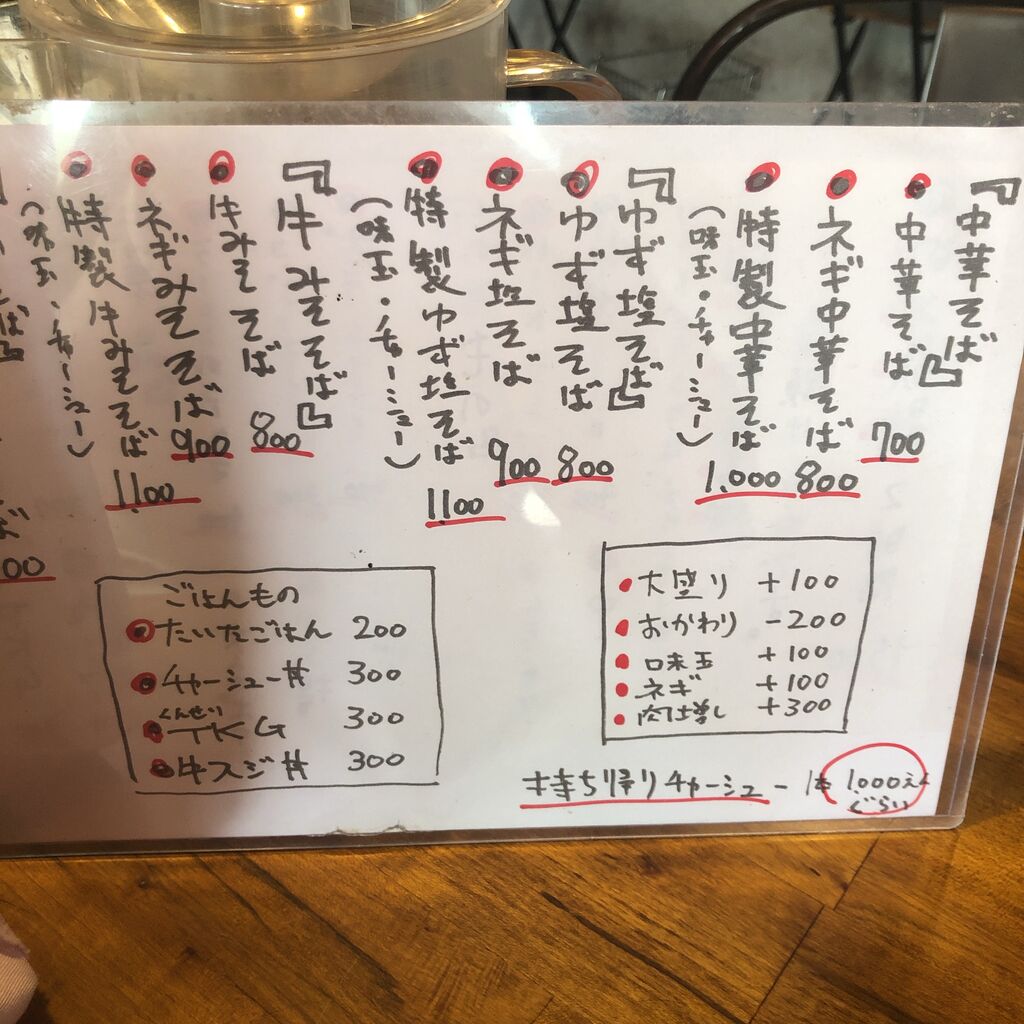 『中華そば』
中華そば 700
ネギ中華そば 800
特製中華そば 1,000
(味玉・チャーシュー)
『ゆず塩そば』
ゆず塩そば 800
ネギ塩そば 900
特製ゆず塩そば 1,100
(味玉・チャーシュー)
『牛みそそば』
牛みそそば 800
ネギみそそば 900
特製牛みそそば 1,100
(味玉・チャーシュー)
大盛り +100
おかわり -200
味玉 +100
ネギ +100
肉増し +300
ごはんもの
たいたごはん 200
チャーシュー丼 300
くんせい
TKG 300
牛スジ丼 300
持ち帰りチャーシュー 1本 1,000えん
ぐらい